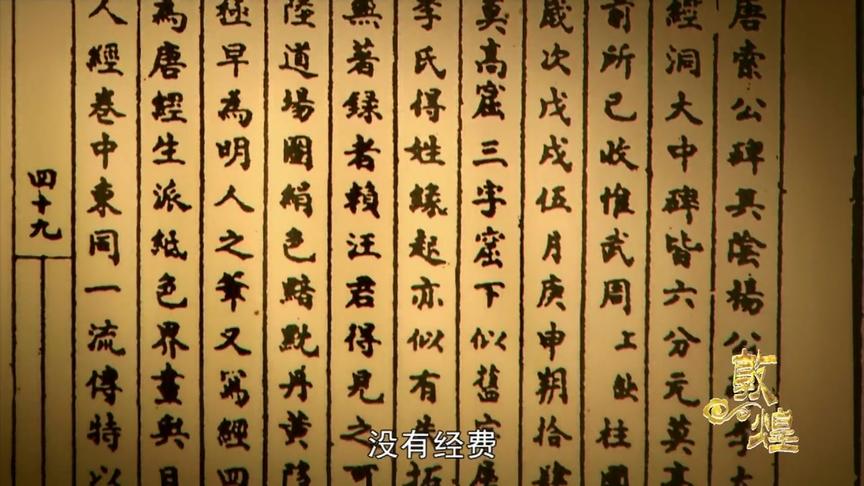 唐索公碑其陰楊公
經洞大中碑皆六分元莫高
前所已收惟武周上柱國
歲次戊戌伍月庚申朔拾肆
莫高窟三字窟下似舊
李氏得姓緣起亦似有
無著錄者賴汪君得見之可
陸道場圖絹色黯黕丹黃
極早為明人之筆又寫經四
為唐經生派紙色界畫與日
人經卷中東同一流傳特以
四十九
敦煌
没有经费